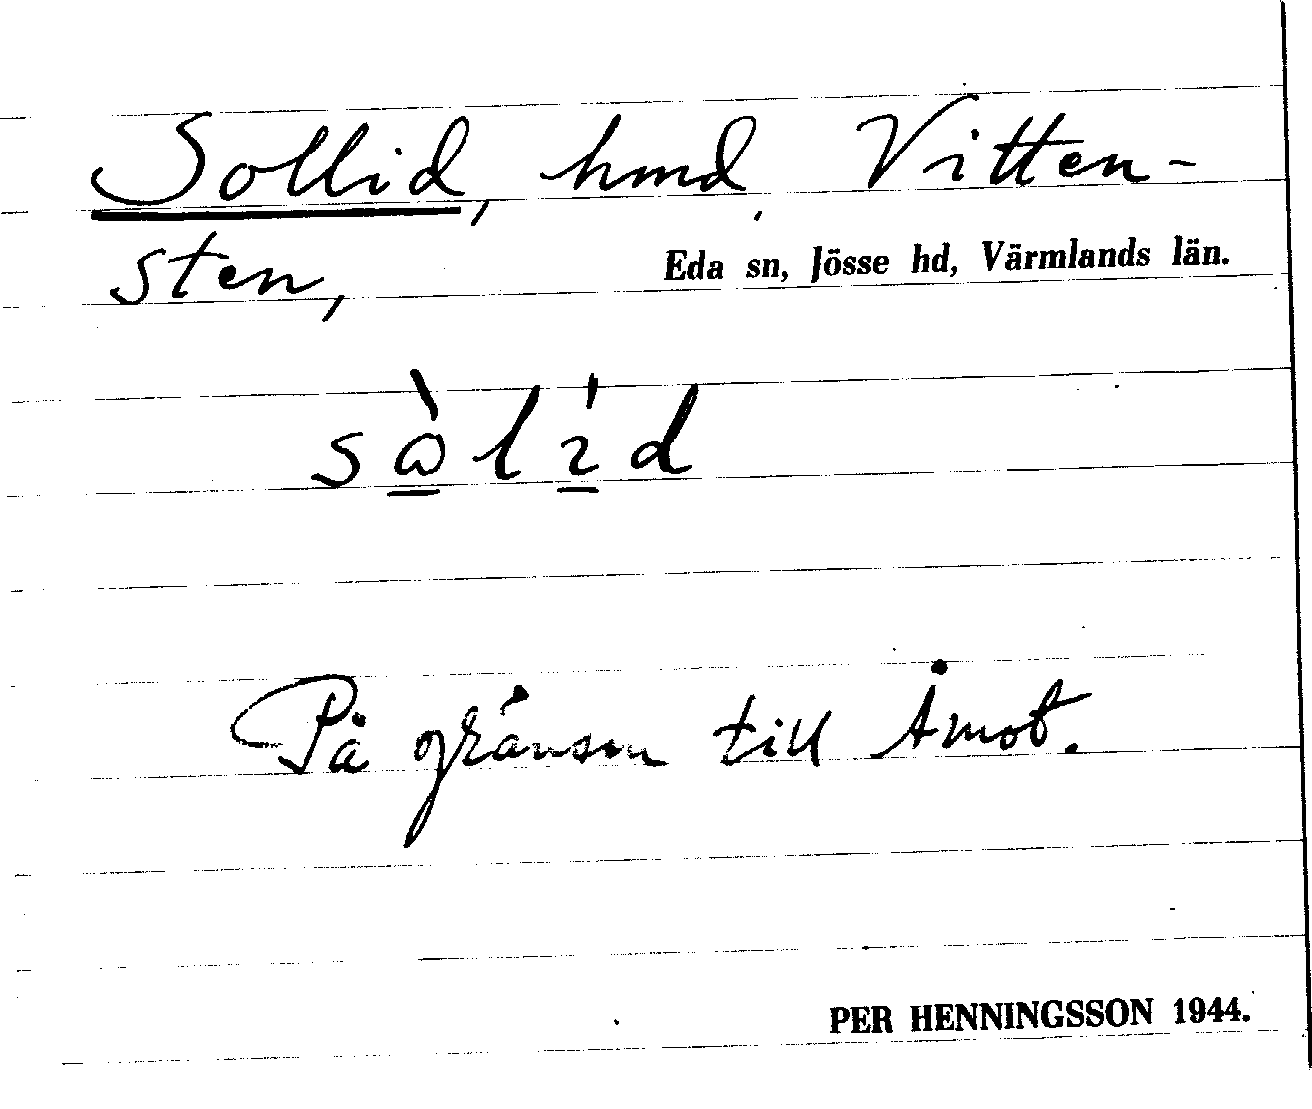 Sollid, hmd Vitten-
sten, Eda sn, Jösse hd, Värmlands län.
På gränsen till Åmot.
PER HENNINGSSON 1944.